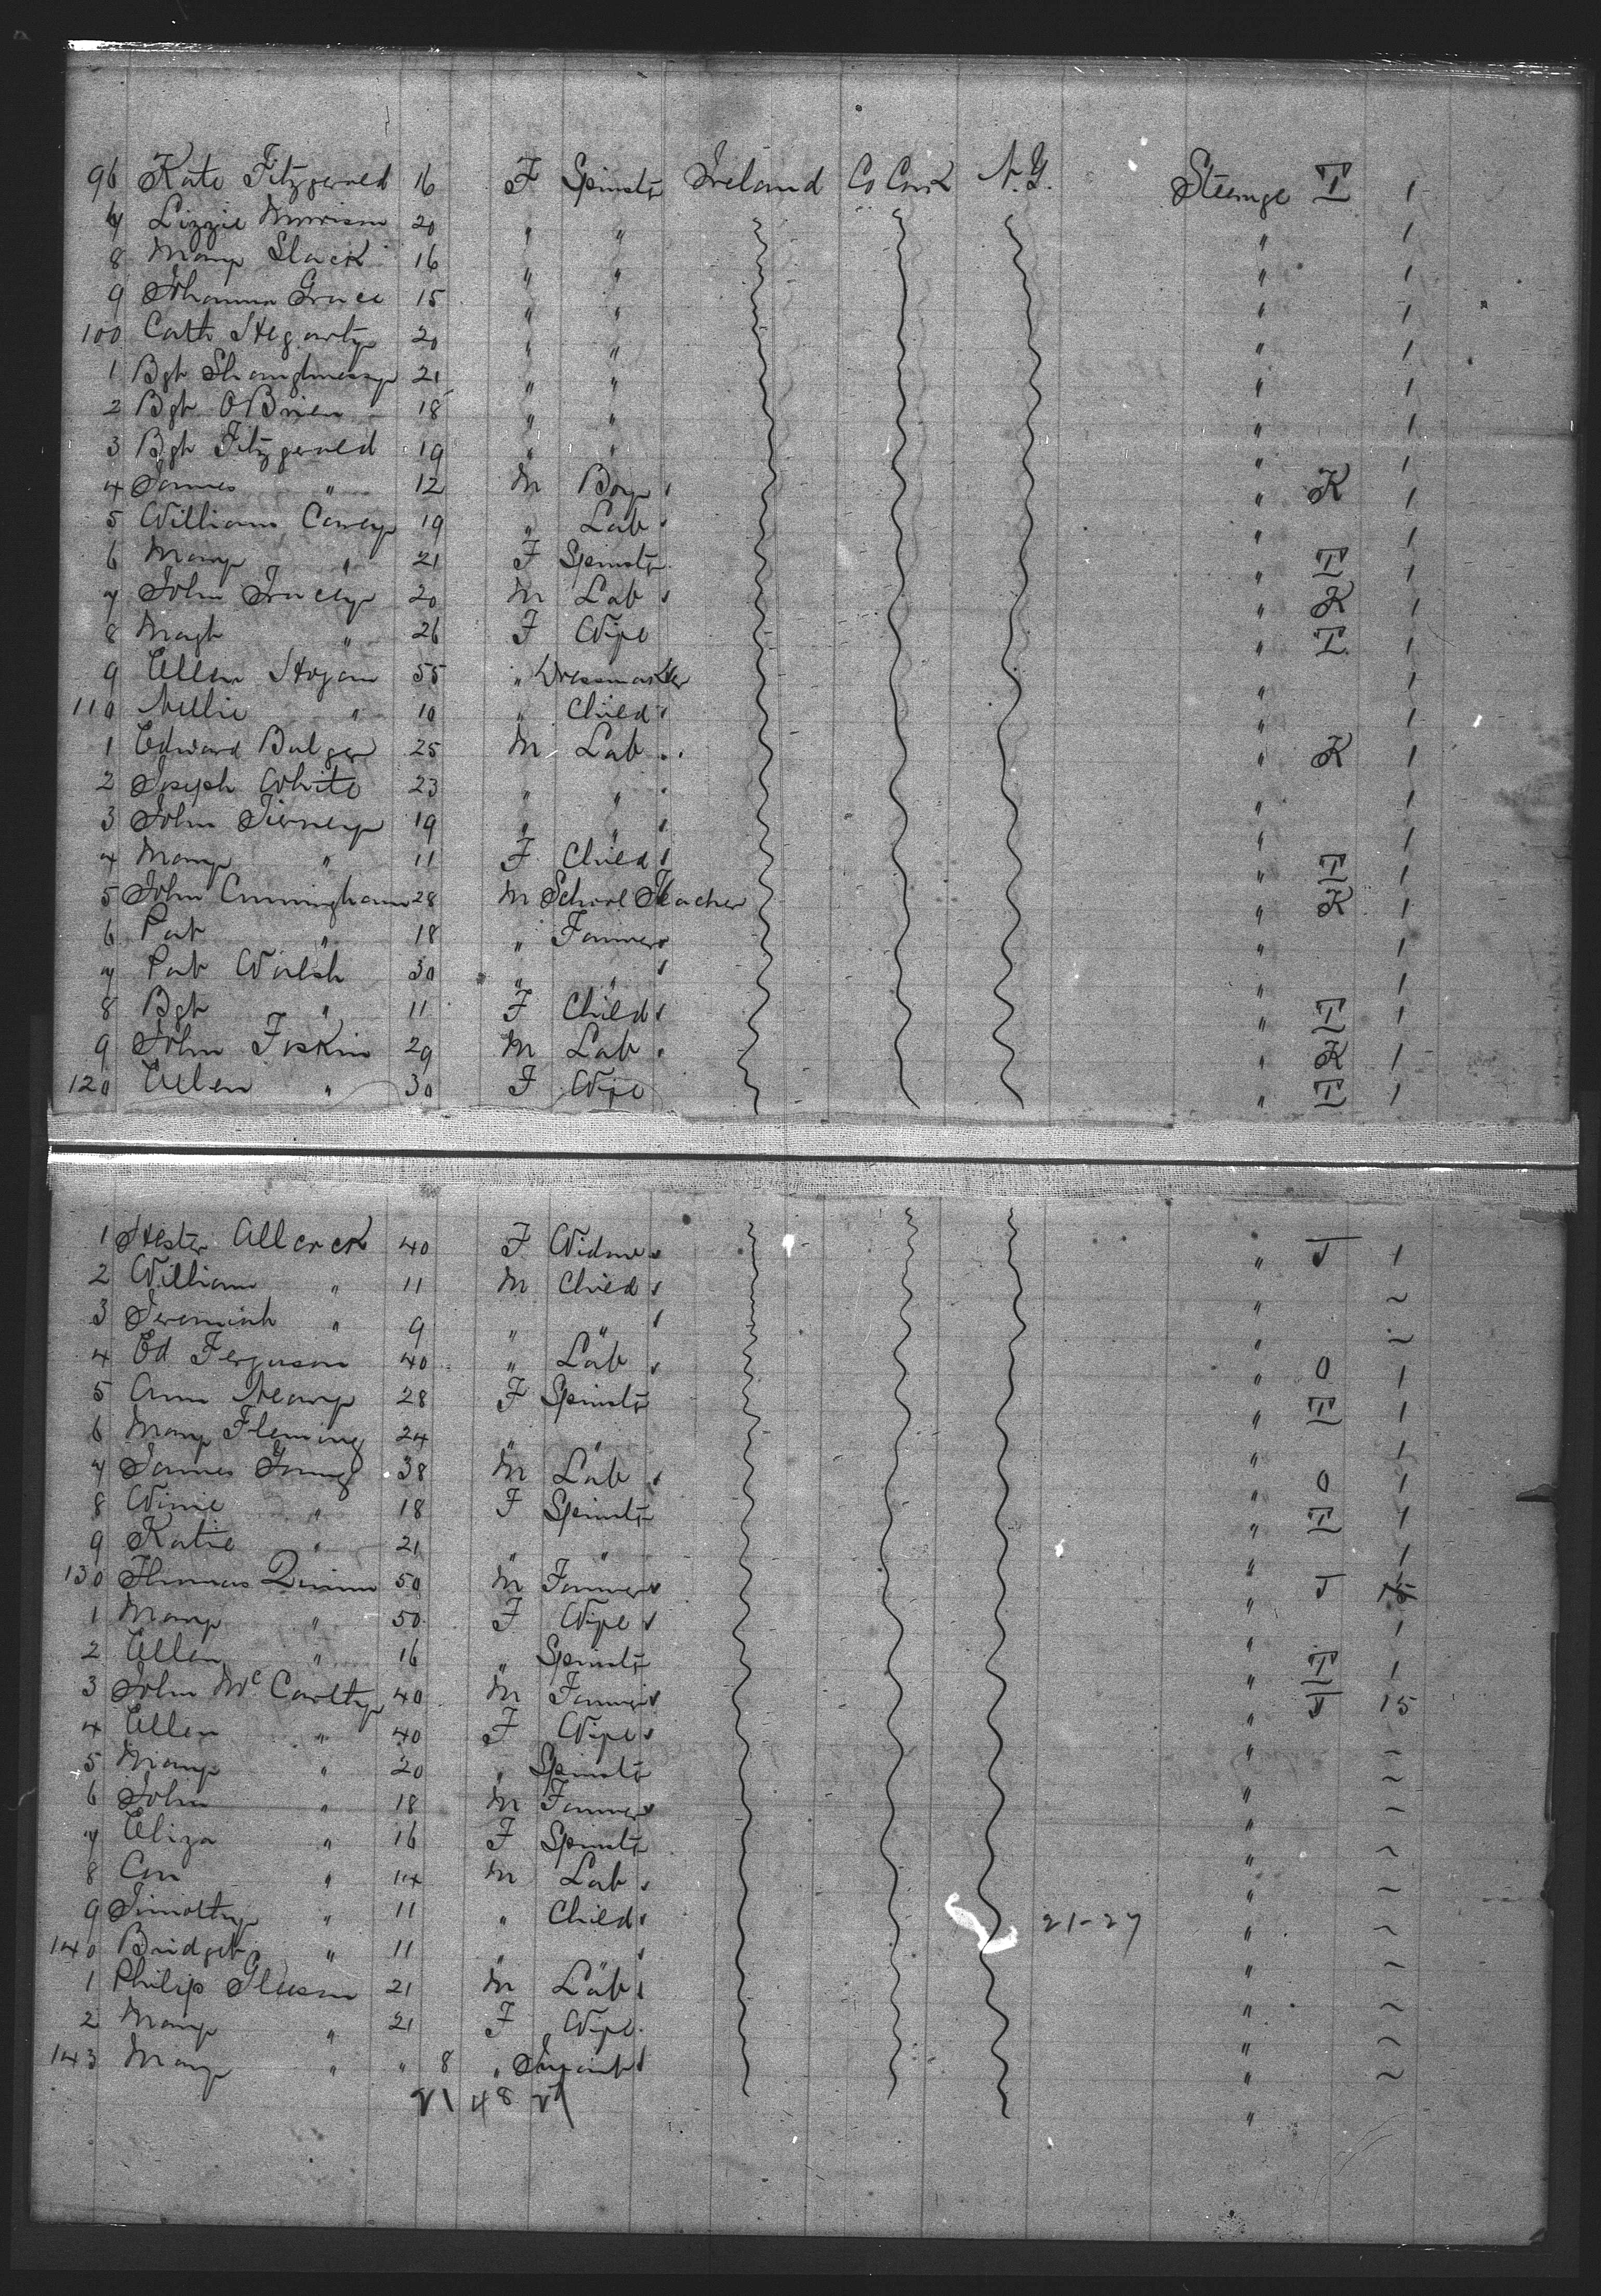 96 Kate Fitzgerald 16 F Spinstr Ireland Co Cork N.Y. Steerage T 1
7 Lizzie Morrison 20 " " " 1
8 Mary Slack 16 " " " 1
9 Johanna Grace 15 " " " 1
100 Cath Hegarty 20 " " " 1
1 Bgt Shaughnessy 21 " " " 1
2 Bgt OBrien 18 " " " 1
3 Bgt Fitzgerald 19 " " " 1
4 James " 12 M Boy " K 1
5 William Carey 19 " Lab " 1
6 Mary " 21 F Spinstr " T 1
7 John Tracey 20 M Lab " K 1
8 Magt " 26 F Wife " T 1
9 Ellen Hogan 55 " Dressmaker " 1
110 Nellie " 10 " Child " 1
1 Edward Bulger 25 M Lab " K 1
2 Joseph White 23 " " " 1
3 John Tierney 19 " " " 1
4 Mary " 11 F Child " T 1
5 John Cunningham 28 M School Teacher " K 1
6 Pat " 18 " Farmer " 1
7 Pat Walsh 30 " " " 1
8 Bgt " 11 F Child " T 1
9 John Foskin 29 M Lab " K 1
120 Ellen " 30 F Wife " T 1
1 Hester Allcock 40 F Widow " J 1
2 William " 11 M Child " ~
3 Jeremiah " 9 " " " ~
4 Ed Ferguson 40 " Lab " O 1
5 Ann Neary 28 F Spinstr " T 1
6 Mary Fleming 24 " " " 1
7 James Young 38 M Lab " O 1
8 Winie " 18 F Spinstr " T 1
9 Katie " 21 " " " 1
130 Thomas Quinn 50 M Farmer " J
1 Mary " 50 F Wife " 1
2 Ellen " 16 " Spinstr " T 1
3 John McCarthy 40 M Farmer " J 15
4 Ellen " 40 F Wife " ~
5 Mary " 20 " Spinstr " ~
6 John " 18 M Farmer " ~
7 Eliza " 16 F Spinstr " ~
8 Con " 14 M Lab " ~
9 Timothy " 11 " Child 21-27 " ~
140 Bridget " 11 " " " ~
1 Philip Gleeson 21 M Lab " ~
2 Mary " 21 F Wife " ~
143 Mary " " 8 " Infant " ~
21 48 21 "